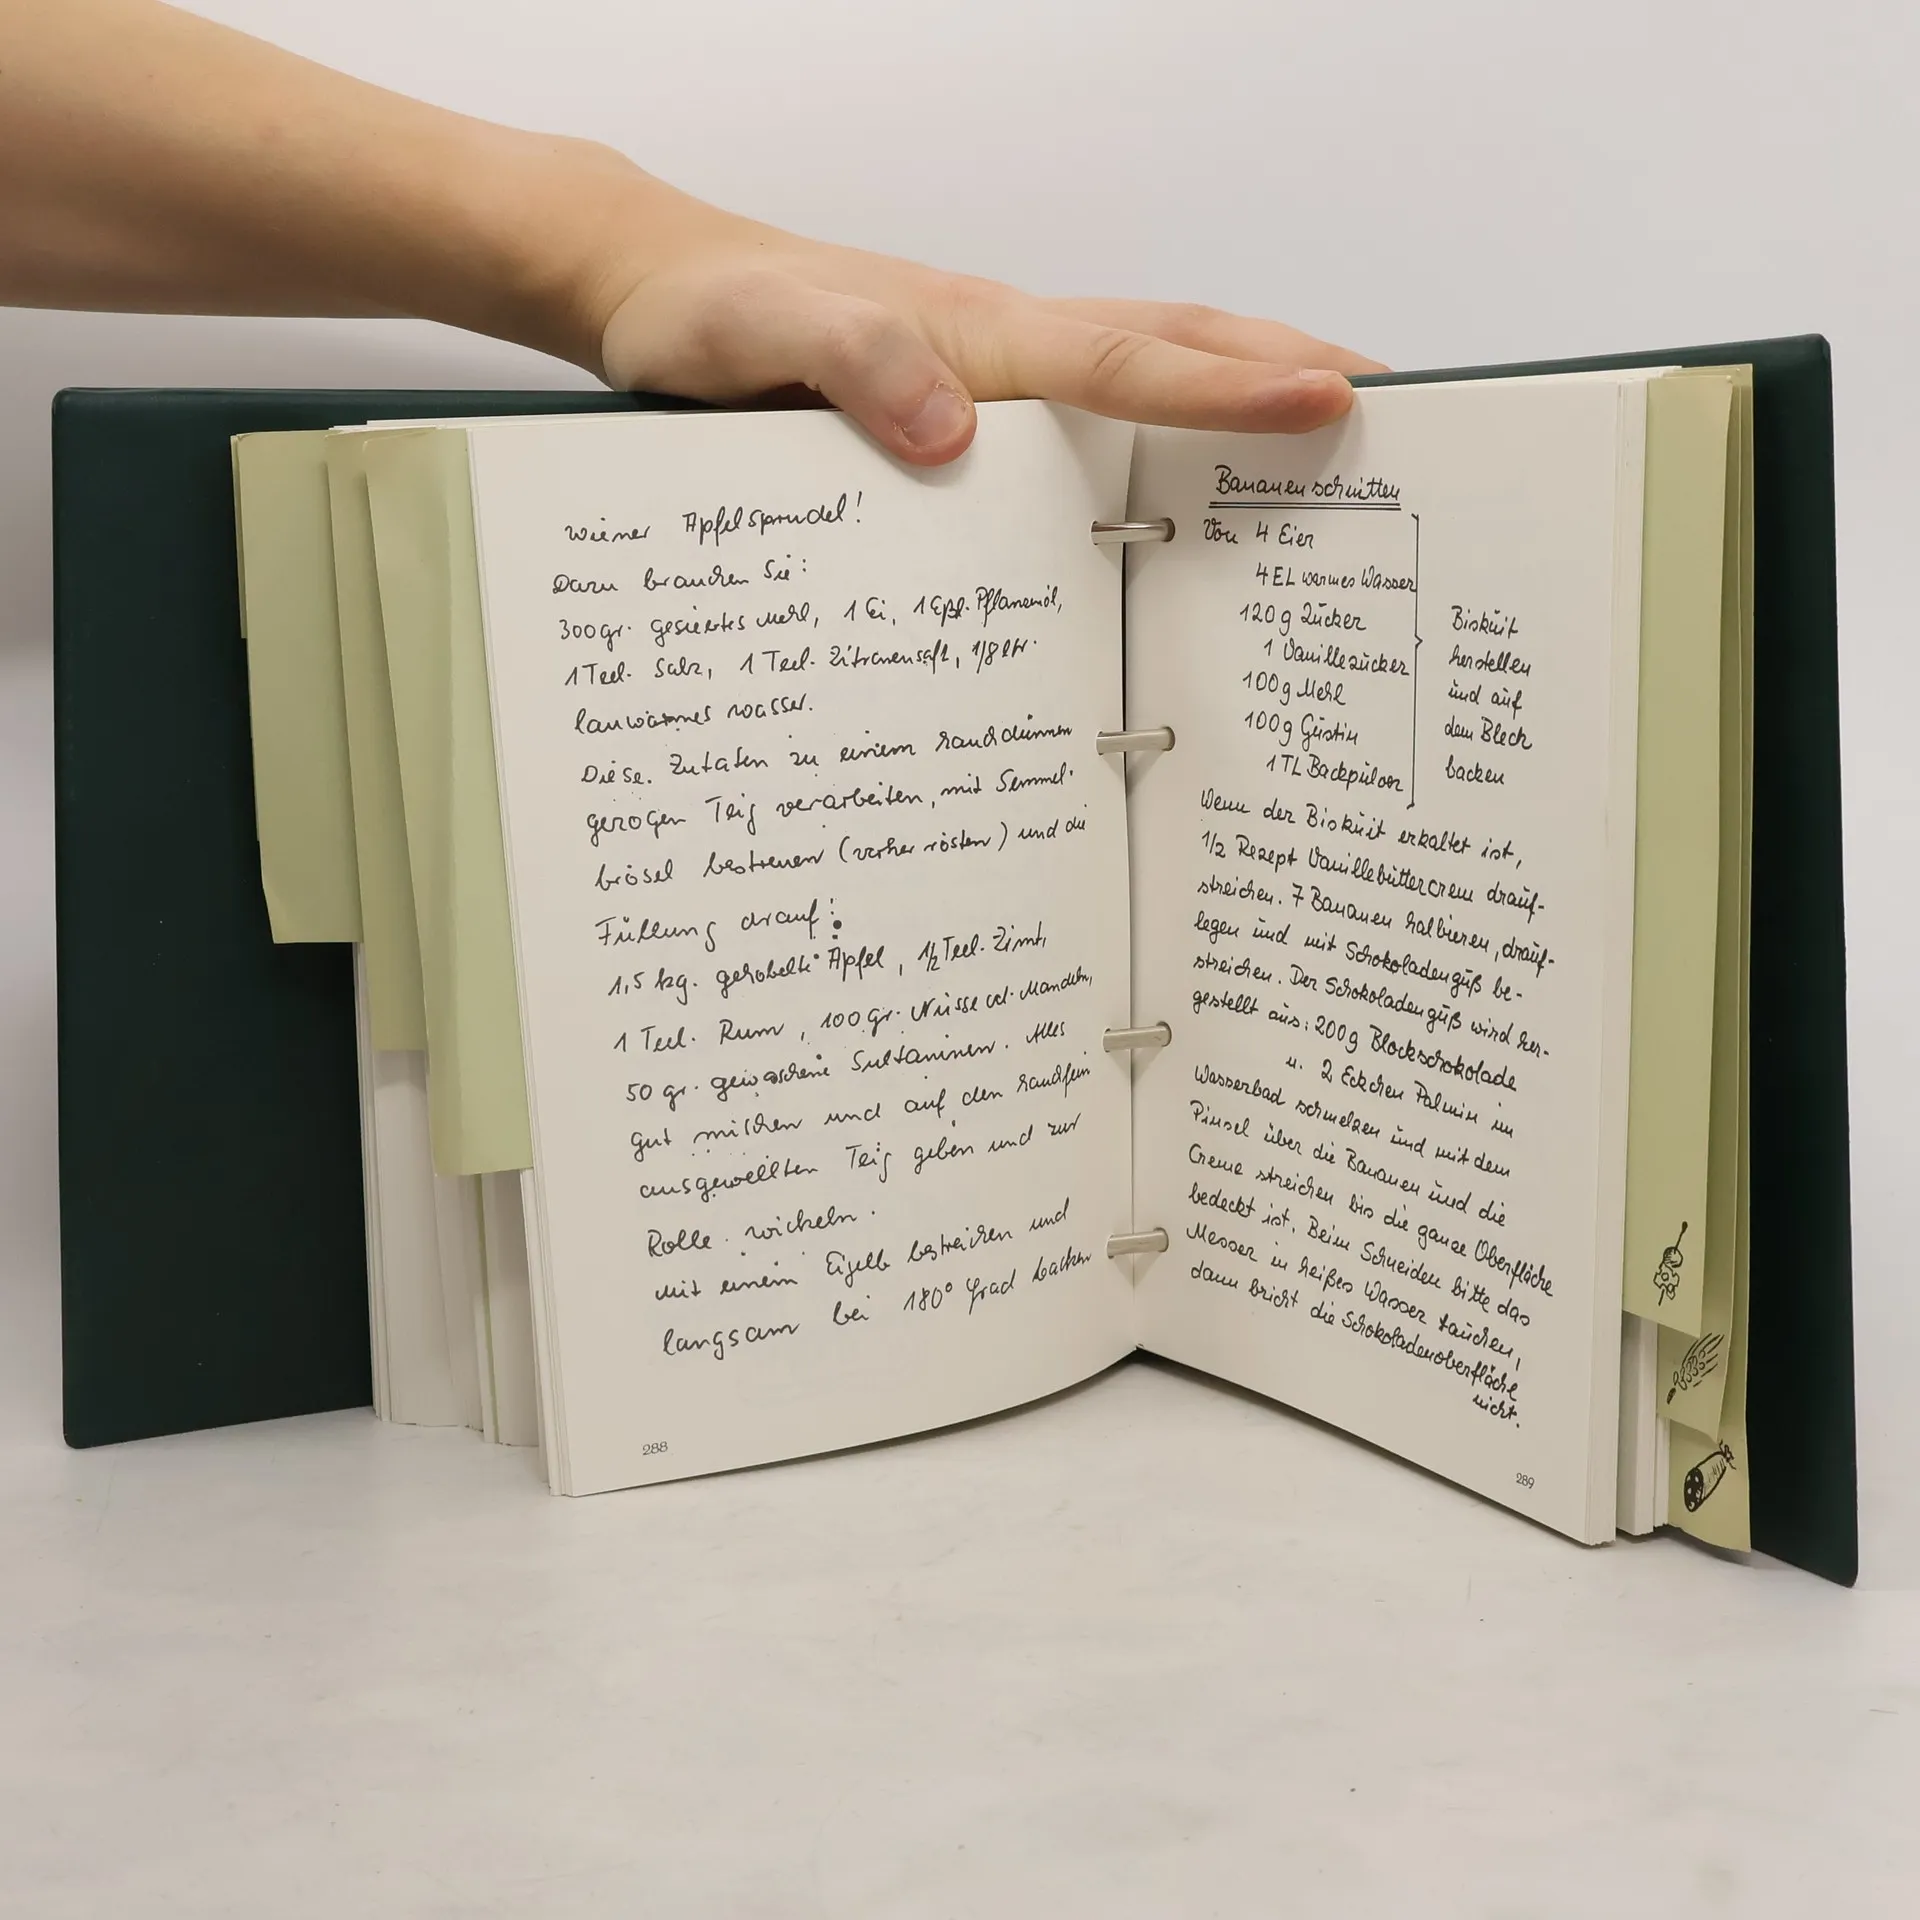 Wiener Apfelsprudel!
Dazu brauchen Sie:
300gr. gesiebtes Mehl, 1 Ei, 1 Eßl. Pflanzenöl,
1 Teel. Salz, 1 Teel. Zitronensaft, 1/8 ltr.
lauwarmes Wasser.
Diese Zutaten zu einem hauchdünnen
gezogen Teig verarbeiten, mit Semmel-
brösel bestreuen (vorher rösten) und die
Füllung drauf:
1,5 kg. gehobelte Äpfel, 1/2 Teel. Zimt,
1 Teel. Rum, 100 gr. Nüsse od. Mandeln,
50 gr. gewaschene Sultaninen. Alles
gut mischen und auf den hauchfein
ausgewellten Teig geben und zur
Rolle wickeln.
Mit einem Eigelb bestreichen und
langsam bei 180° Grad backen
288
Bananenschnitten
Von 4 Eier
4 EL warmes Wasser
120 g Zucker
1 Vanillezucker
100 g Mehl
100 g Gustin
1 TL Backpulver
Biskuit
herstellen
und auf
dem Blech
backen
Wenn der Biskuit erkaltet ist,
1/2 Rezept Vanillebuttercrem drauf-
streichen. 7 Bananen halbieren, drauf-
legen und mit Schokoladenguß be-
streichen. Der Schokoladenguß wird her-
gestellt aus: 200g Blockschokolade
u. 2 Eckchen Palmin im
Wasserbad schmelzen und mit dem
Pinsel über die Bananen und die
Creme streichen bis die ganze Oberfläche
bedeckt ist. Beim Schneiden bitte das
Messer in heißes Wasser tauchen,
dann bricht die Schokoladenoberfläche
nicht.
289